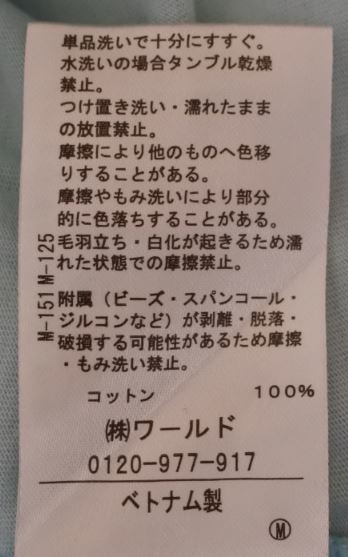 単品洗いで十分にすすぐ。
水洗いの場合タンブル乾燥
禁止。
つけ置き洗い・濡れたまま
の放置禁止。
摩擦により他のものへ色移
りすることがある。
摩擦やもみ洗いにより部分
的に色落ちすることがある。
毛羽立ち・白化が起きるため濡
れた状態での摩擦禁止。
M-151M-125
附属（ビーズ・スパンコール・
ジルコンなど）が剥離・脱落・
破損する可能性があるため摩擦
・もみ洗い禁止。
コットン 100%
㈱ワールド
0120-977-917
ベトナム製
Ⓜ